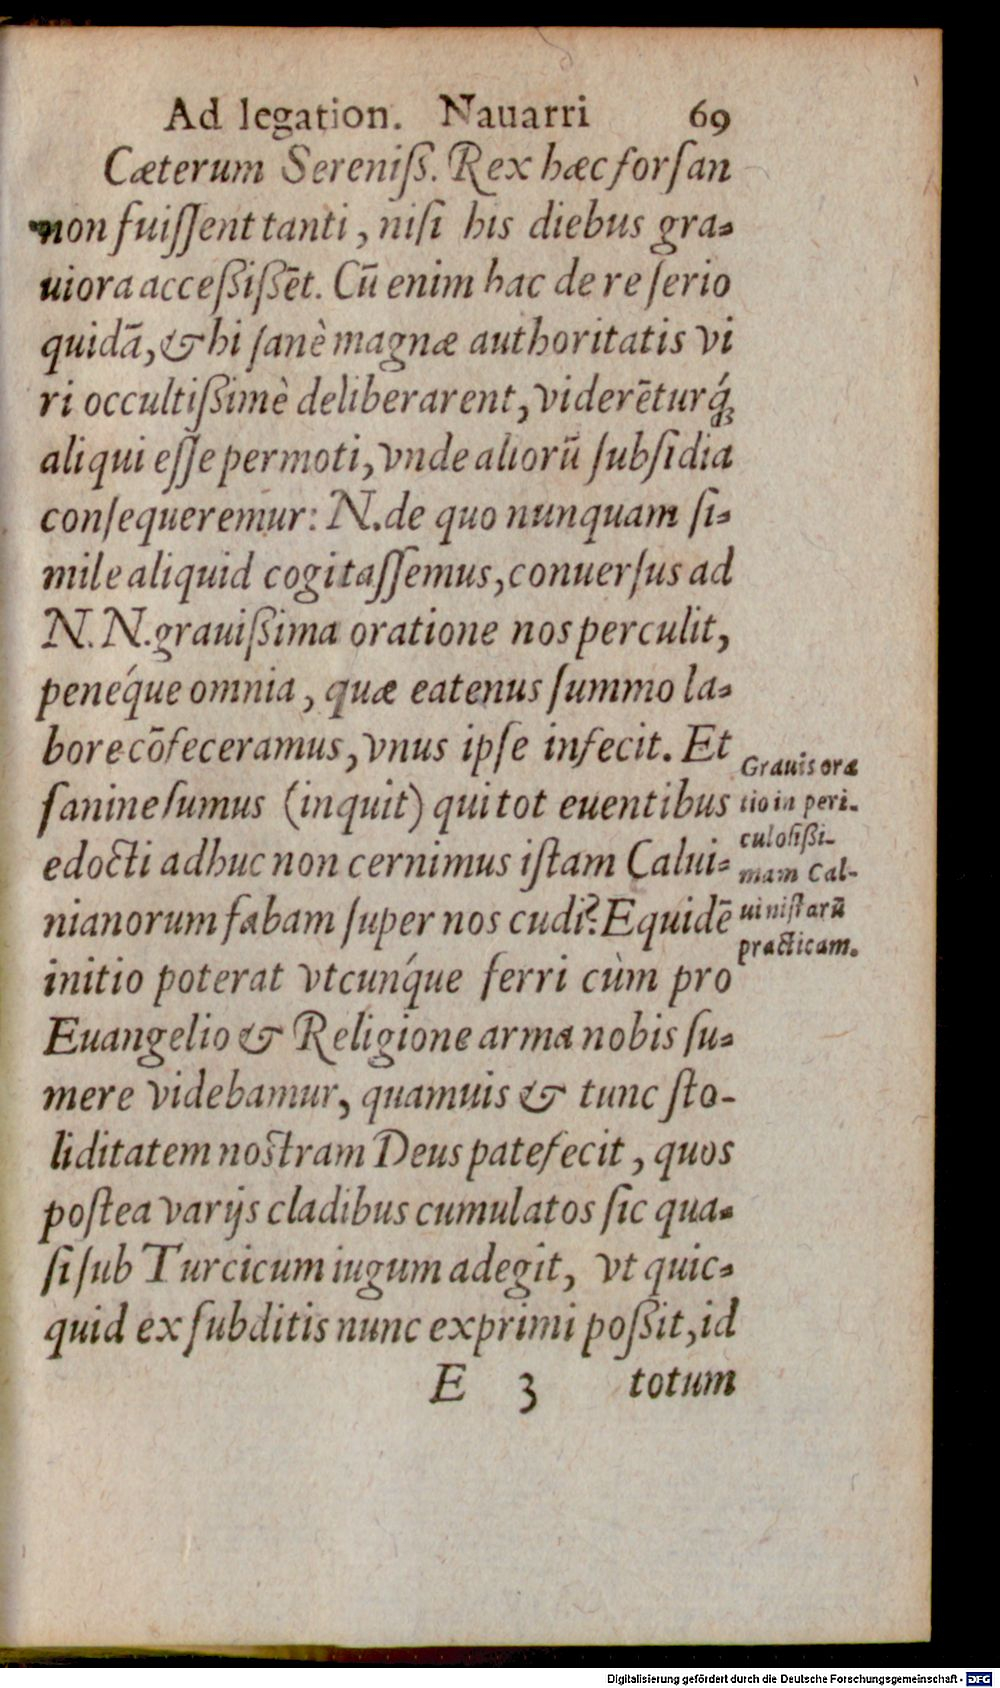 Ad legation. Nauarri 69
Cæterum Sereniß. Rex hæc forſan
non fuiſſent tanti, niſi his diebus gra-
uiora acceßißēt. Cū enim hac de re ſerio
quidā, & hi ſanè magnæ authoritatis vi
ri occultißimè deliberarent, viderēturq́;
aliqui eſſe permoti, vnde aliorū ſubſidia
conſequeremur: N. de quo nunquam ſi-
mile aliquid cogitaſſemus, conuerſus ad
N. N. grauißima oratione nos perculit,
penéque omnia, quæ eatenus ſummo la-
bore cōfeceramus, vnus ipſe infecit. Et
ſanine ſumus (inquit) qui tot euentibus
edocti adhuc non cernimus iſtam Calui-
nianorum fabam ſuper nos cudi? Equidē
initio poterat vtcunq́ue ferri cùm pro
Euangelio & Religione arma nobis ſu-
mere videbamur, quamuis & tunc ſto-
liditatem noſtram Deus patefecit, quos
poſtea varijs cladibus cumulatos ſic qua-
ſi ſub Turcicum iugum adegit, vt quic-
quid ex ſubditis nunc exprimi poßit, id
E 3 totum
Grauis ora
tio in peri-
culoſißi-
mam Cal-
uiniſtarū
practicam.
Digitalisierung gefördert durch die Deutsche Forschungsgemeinschaft - DFG